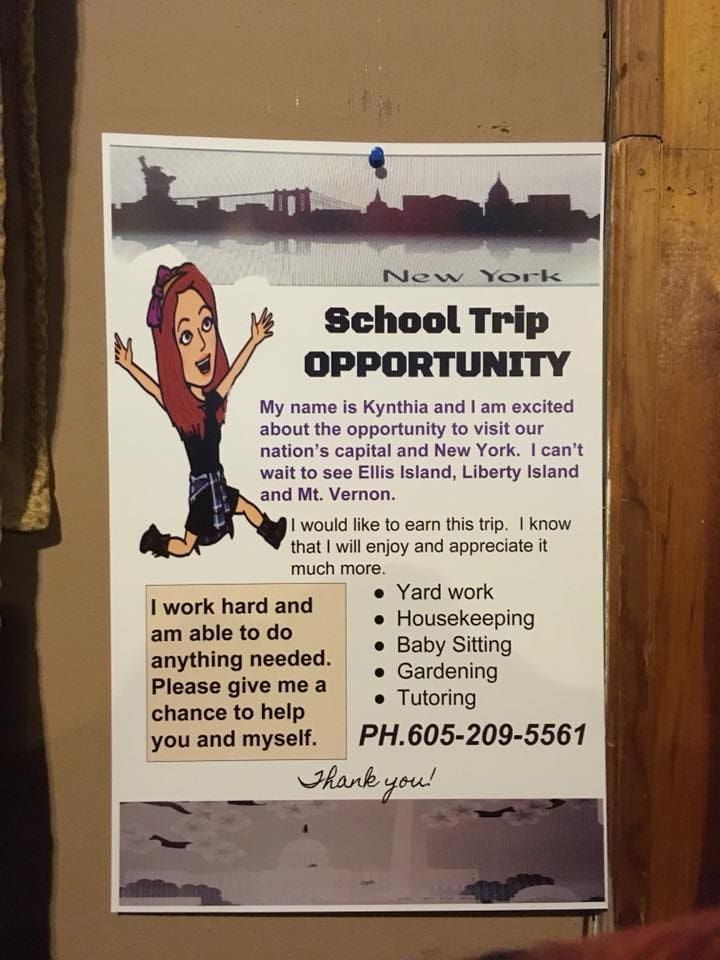 New York
School Trip
OPPORTUNITY
My name is Kynthia and I am excited
about the opportunity to visit our
nation's capital and New York. I can't
wait to see Ellis Island, Liberty Island
and Mt. Vernon.
I would like to earn this trip. I know
that I will enjoy and appreciate it
much more.
I work hard and
am able to do
anything needed.
Please give me a
chance to help
you and myself.
• Yard work
• Housekeeping
• Baby Sitting
• Gardening
• Tutoring
PH.605-209-5561
Thank you!